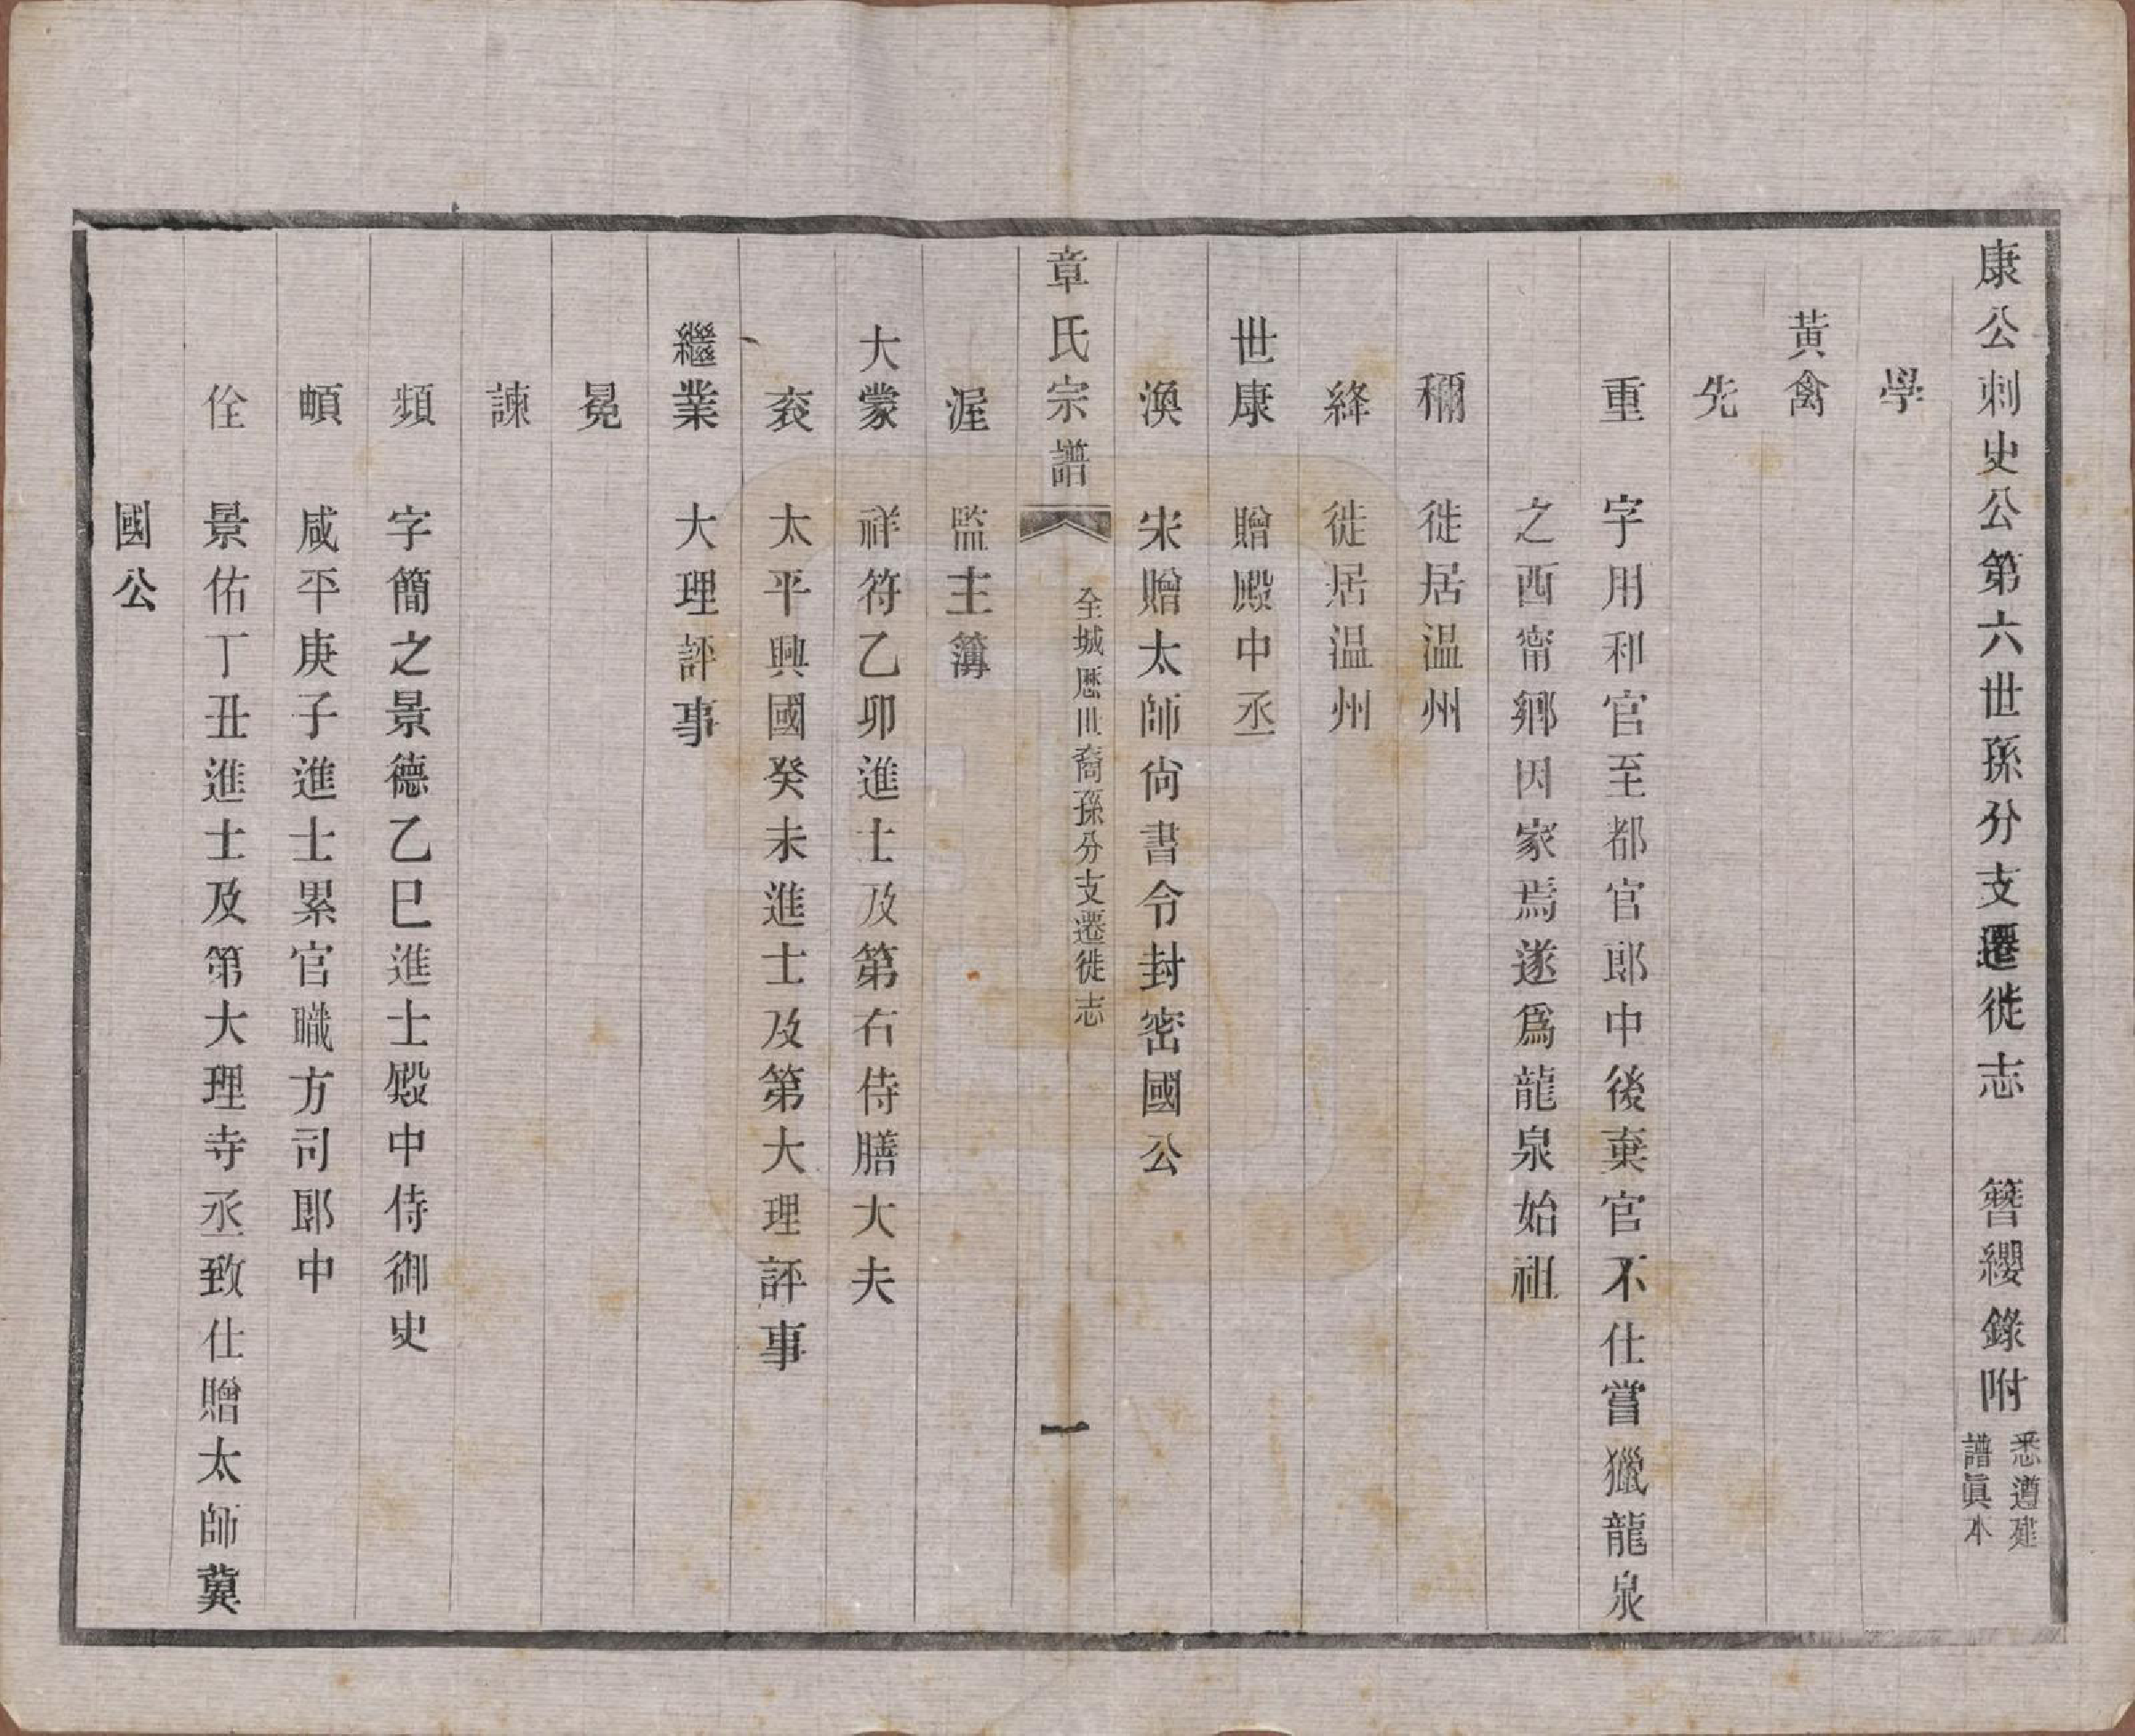 康公刺史公第六世孫分支遷徙志 簪纓錄附 悉遵建譜眞本
學
黃禽
先
重 字用和官至都官郎中後棄官不仕嘗獵龍泉
之西甯鄉因家焉遂爲龍泉始祖
穪 徙居温州
絳 徙居温州
世康 贈殿中丞
渙 宋贈太師尙書令封密國公
章氏宗譜 全城歷世裔孫分支遷徙志 一
渥 監主簿
大蒙 祥符乙卯進士及第右侍膳大夫
衮 太平興國癸未進士及第大理評事
繼業 大理評事
冕
諫
頻 字簡之景德乙巳進士殿中侍御史
頔 咸平庚子進士累官職方司郎中
佺 景佑丁丑進士及第大理寺丞致仕贈太師冀
國公